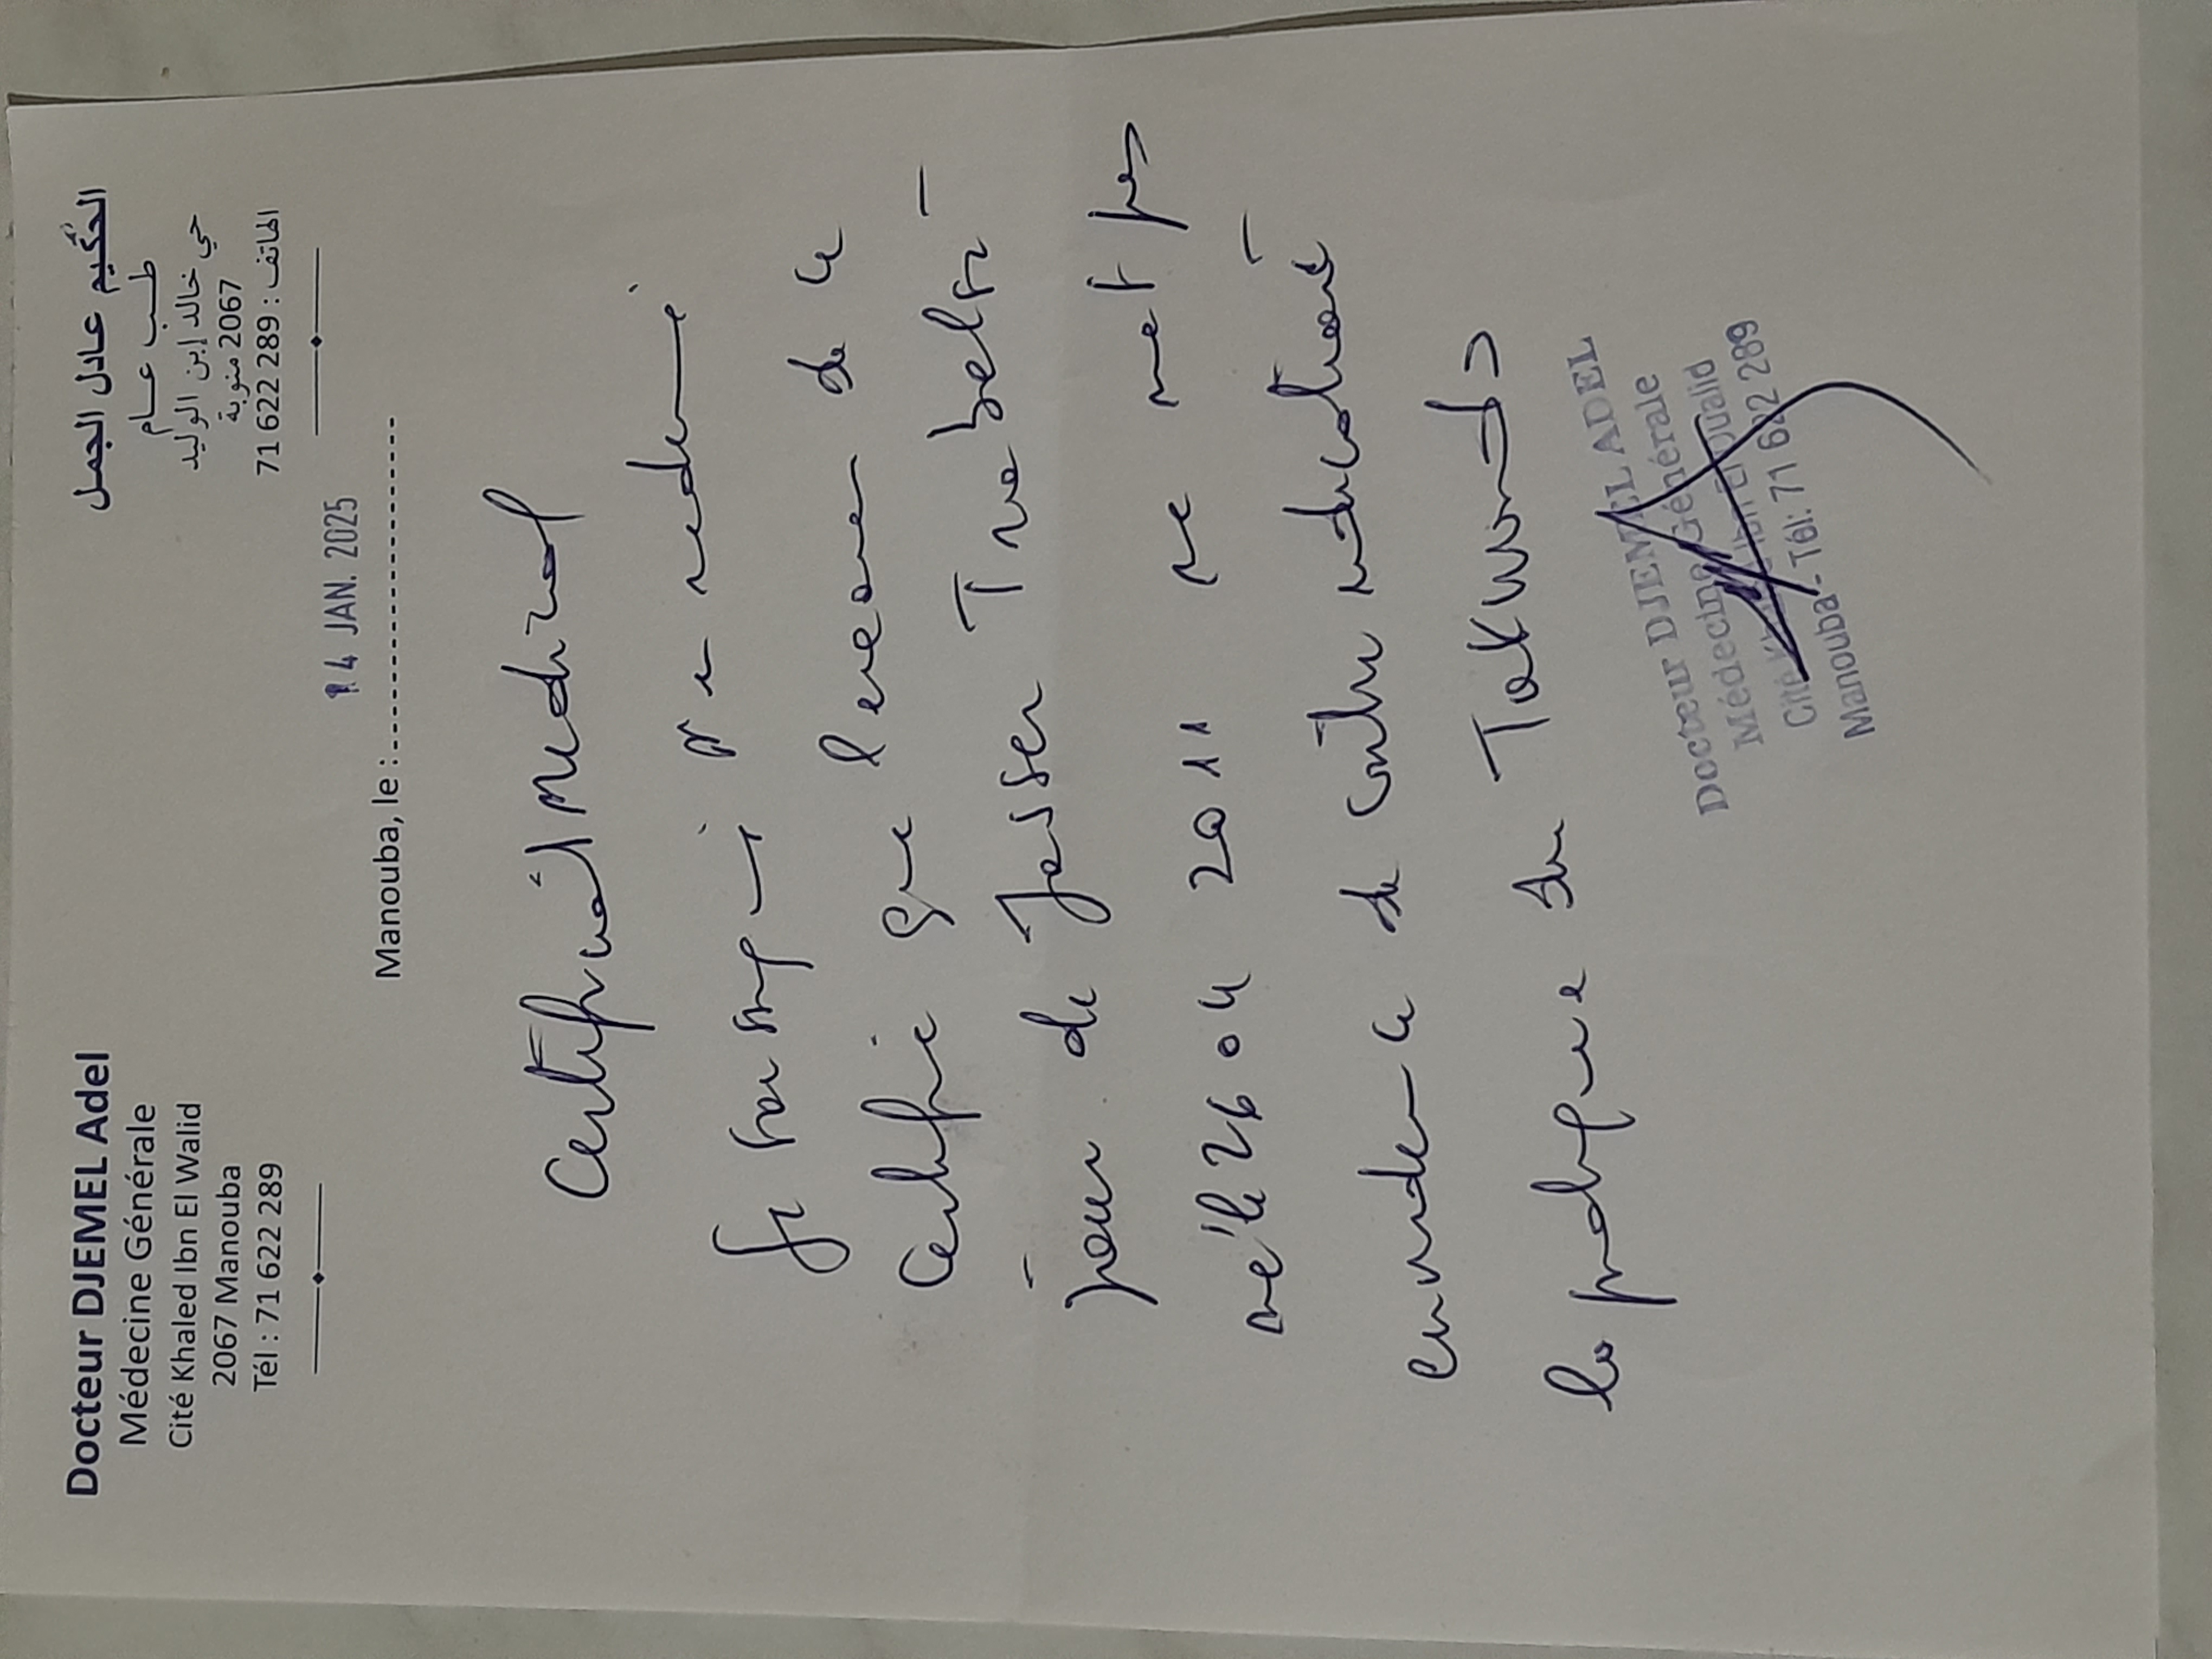 Docteur DJEMEL Adel
Médecine Générale
Cité Khaled Ibn El Walid
2067 Manouba
Tél : 71 622 289
الحكيم عادل الجمل
طب عام
حي خالد إبن الوليد
2067 منوبة
الهاتف : 71 622 289
Manouba, le : 14 JAN. 2025
Certificat Medical
Je soussigné
Certifie que l'examen de ce
jour de Jasser
né le 26 04 2011 ne met pas
evidence de contre indication
la pratique du TaKWondo
Docteur DJEMEL ADEL
Médecine Générale
Cité Khaled Ibn El Oualid
Manouba - Tél: 71 622 289